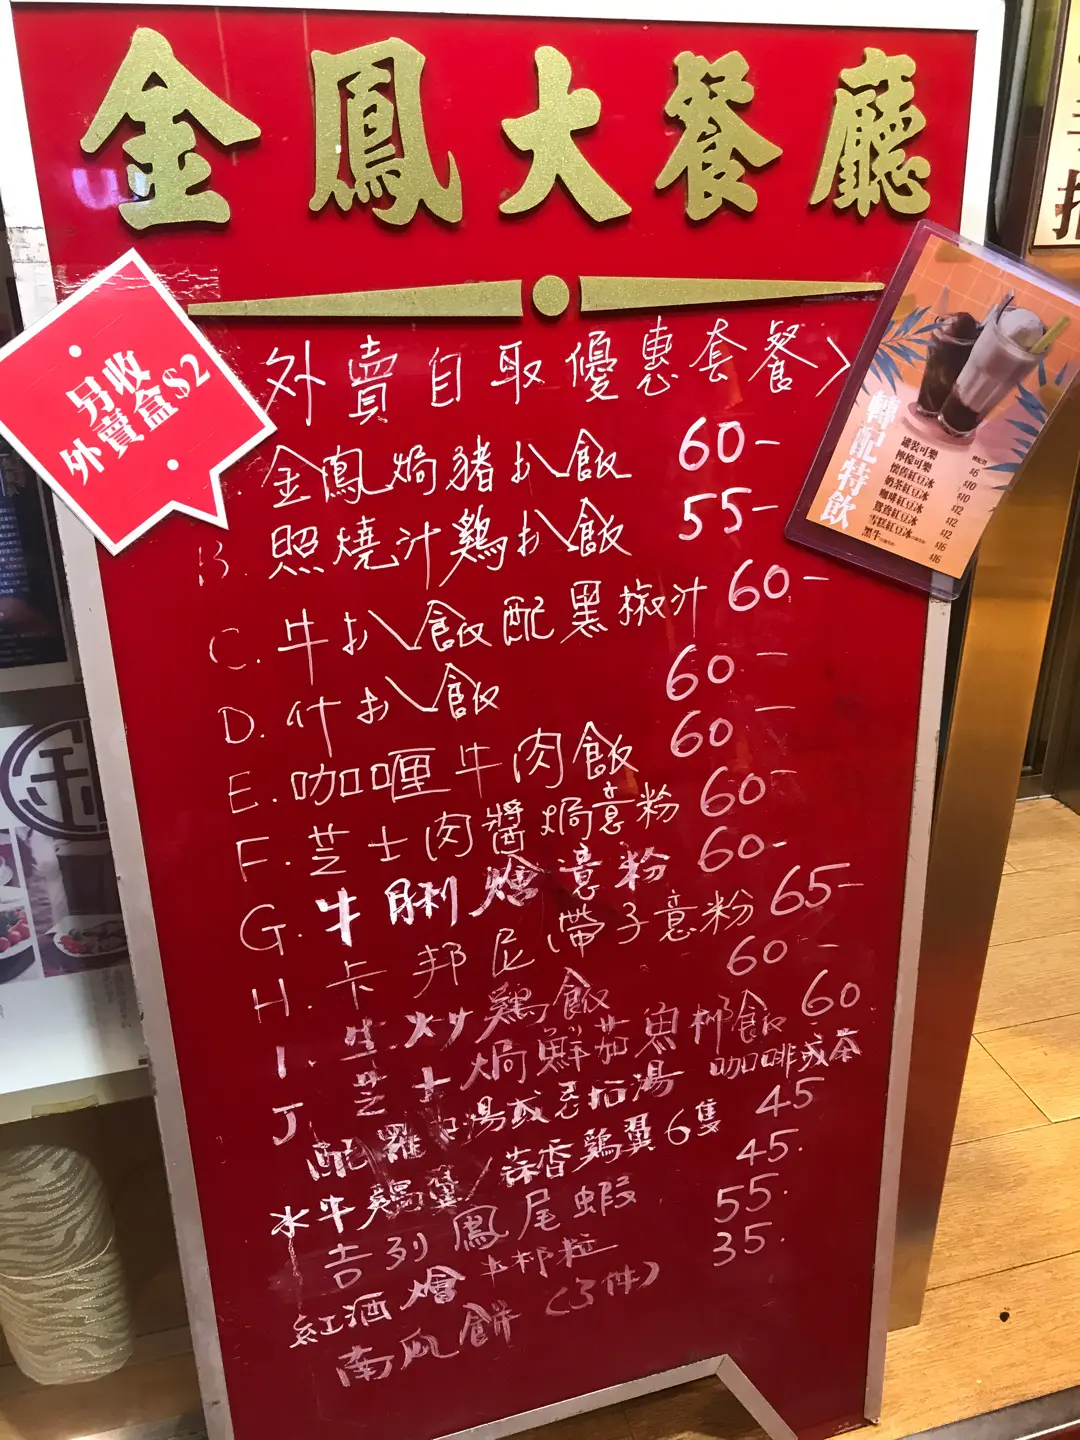 金鳳大餐廳
另收
外賣盒$2
外賣自取優惠套餐
金鳳焗豬扒飯 60-
B. 照燒汁鷄扒飯 55-
C. 牛扒飯配黑椒汁 60-
D. 什扒飯 60-
E. 咖喱牛肉飯 60-
F. 芝士肉醬焗意粉 60-
G. 牛脷燴意粉 60-
H. 卡邦尼帶子意粉 65-
I. 生炒鷄飯 60-
J. 芝士焗鮮茄魚柳飯 60
配羅宋湯或忌廉湯 咖啡或茶
水牛鷄翼/蒜香鷄翼6隻 45
吉列鳳尾蝦 45.
紅酒燴牛柳粒 55.
南瓜餅(3件) 35.
轉配特飲
罐裝可樂 $6
檸檬可樂 $10
懷舊紅豆冰 $10
奶茶紅豆冰 $12
咖啡紅豆冰 $12
鴛鴦紅豆冰 $12
雪糕紅豆冰 $16
黑牛 $16